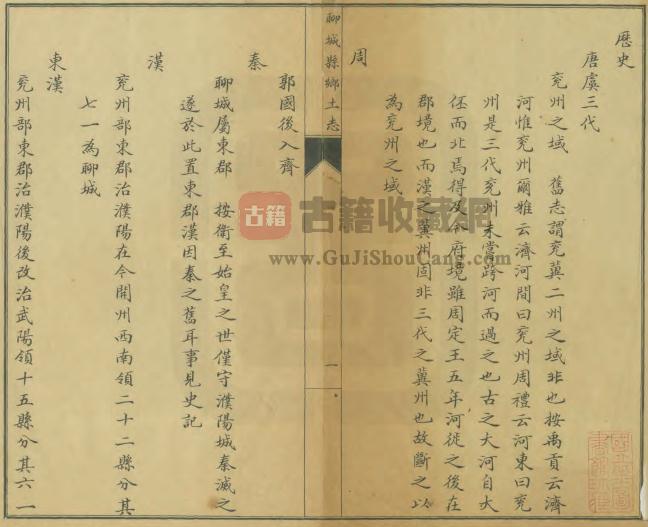 歷史
唐虞三代
兗州之域　舊志謂兗冀二州之域非也按禹貢云濟
河惟兗州爾雅云濟河間曰兗州周禮云河東曰兗
州是三代兗州未嘗跨河而過之也古之大河自大
伾而北焉得及今府境雖周定王五年河徙之後在
郡境也而漢之冀州固非三代之冀州也故斷之以
為兗州之域
周
聊城縣鄉土志
一
郭國後入齊
秦
聊城屬東郡　按衛至始皇之世僅守濮陽城秦滅之
遂於此置東郡漢因秦之舊耳事見史記
漢
兗州部東郡治濮陽在今開州西南領二十二縣分其
七一為聊城
東漢
兗州部東郡治濮陽後改治武陽領十五縣分其六一
古籍
古籍收藏網
www.GuJiShouCang.com